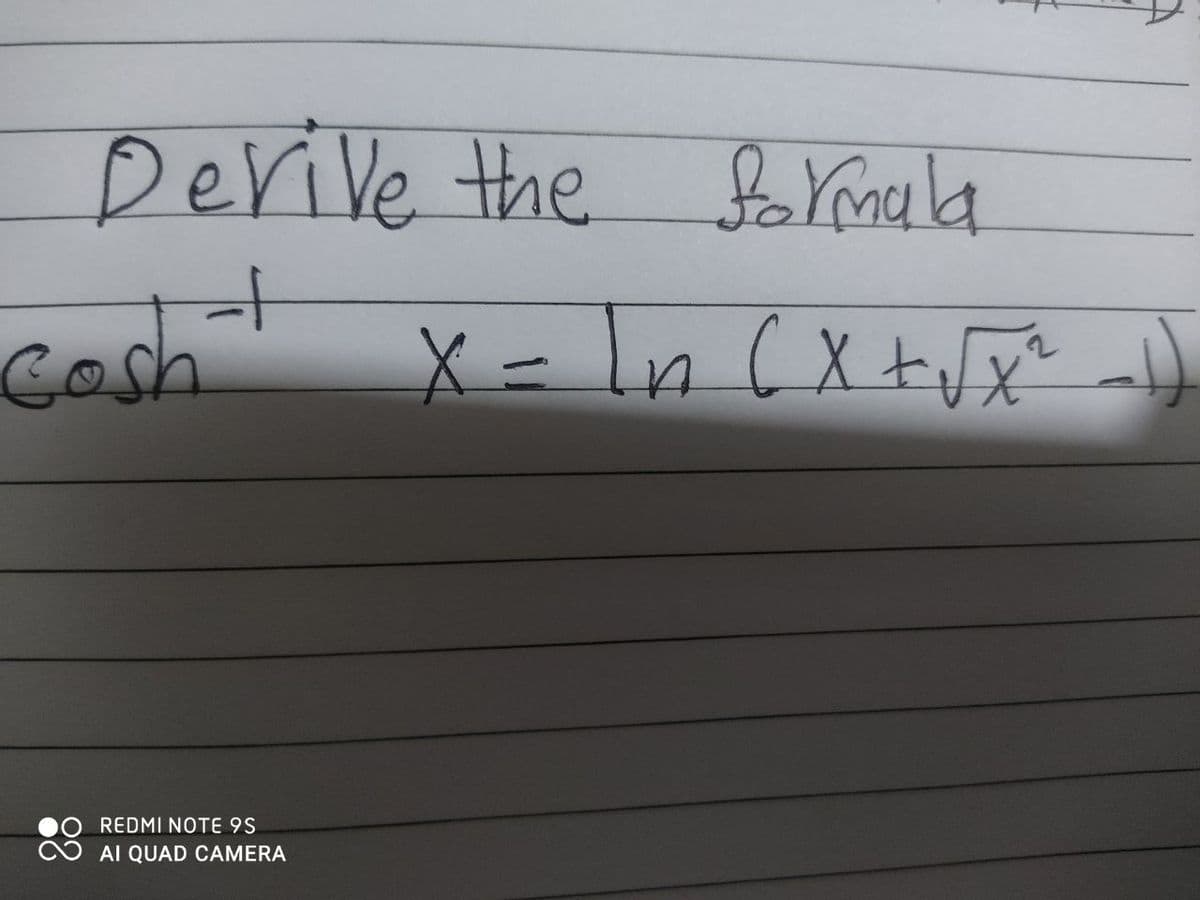 Derive the formula
cosh⁻¹ x = ln (x + √x² - 1)
REDMI NOTE 9S
AI QUAD CAMERA